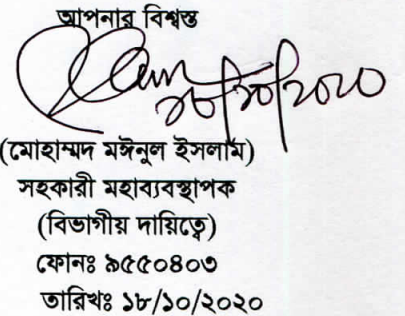 আপনার বিশ্বস্ত
১৮/১০/২০২০
(মোহাম্মদ মঈনুল ইসলাম)
সহকারী মহাব্যবস্থাপক
(বিভাগীয় দায়িত্বে)
ফোনঃ ৯৫৫০৪০৩
তারিখঃ ১৮/১০/২০২০